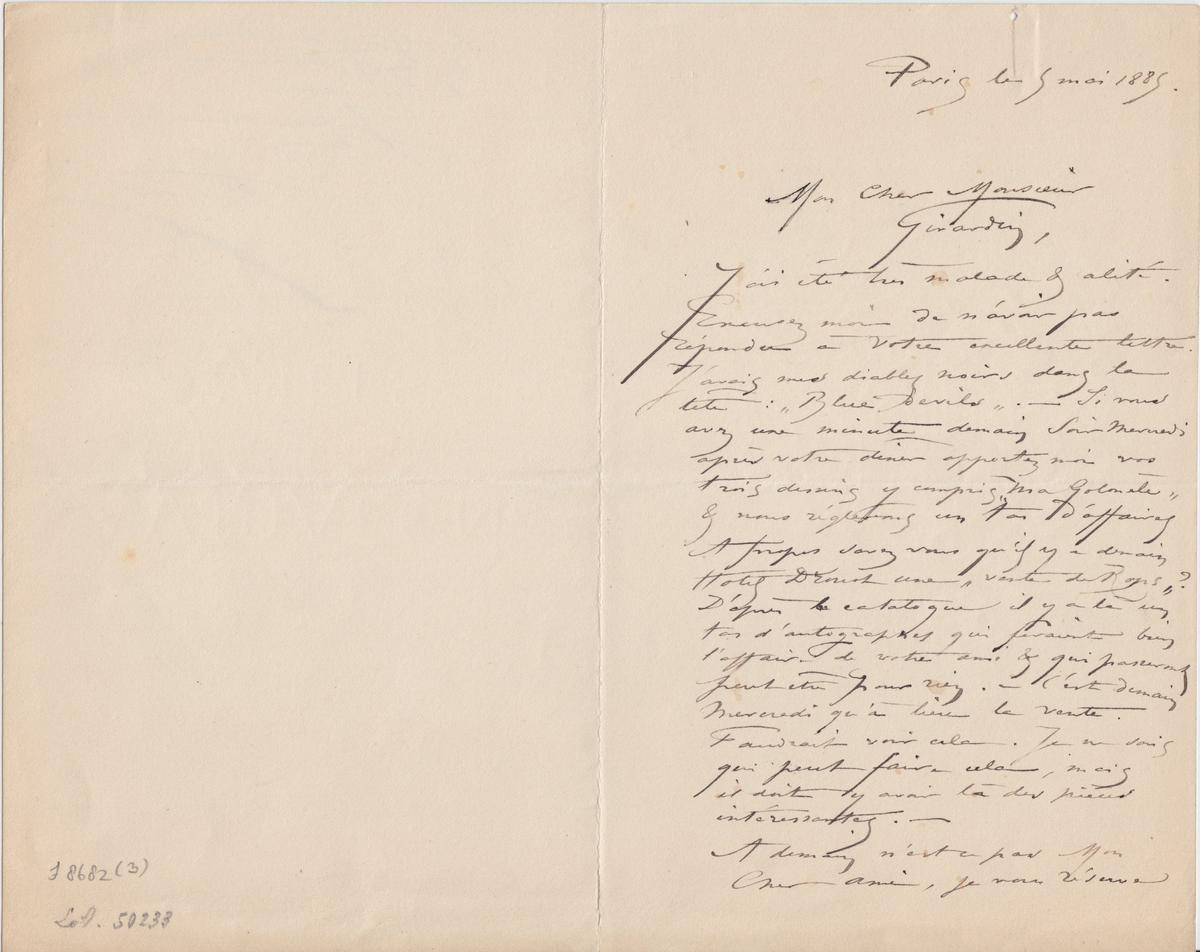 Paris le 5 mai 1885.
Mon Cher Monsieur
Girardin,
J'ais été très malade & alité.
Excusez moi de n'avoir pas
répondu à votre excellente lettre.
J'avais mes diables noirs dans la
tête : „Blue Devils„. — Si vous
avez une minute demain Soir Mercredi
après votre diner apportez moi vos
trois dessins y compris „Ma Colonèle„
& nous réglerons un tas d'affaires
A propos savez vous qu'il y a demain
Hotel Drouot une „vente de Rops„?
D'après le catalogue il y a là un
tas d'autographes qui feraient bien
l'affaire de votre ami & qui passeront
peut être pour rien. — C'est demain
Mercredi qu'à lieu la vente.
Faudrait voir cela. Je ne sais
qui peut faire cela, mais
il doit y avoir là des pièces
intéressantes. —
A demain n'est ce pas Mon
Cher ami, je vous réserve
J 8682 (3)
50233